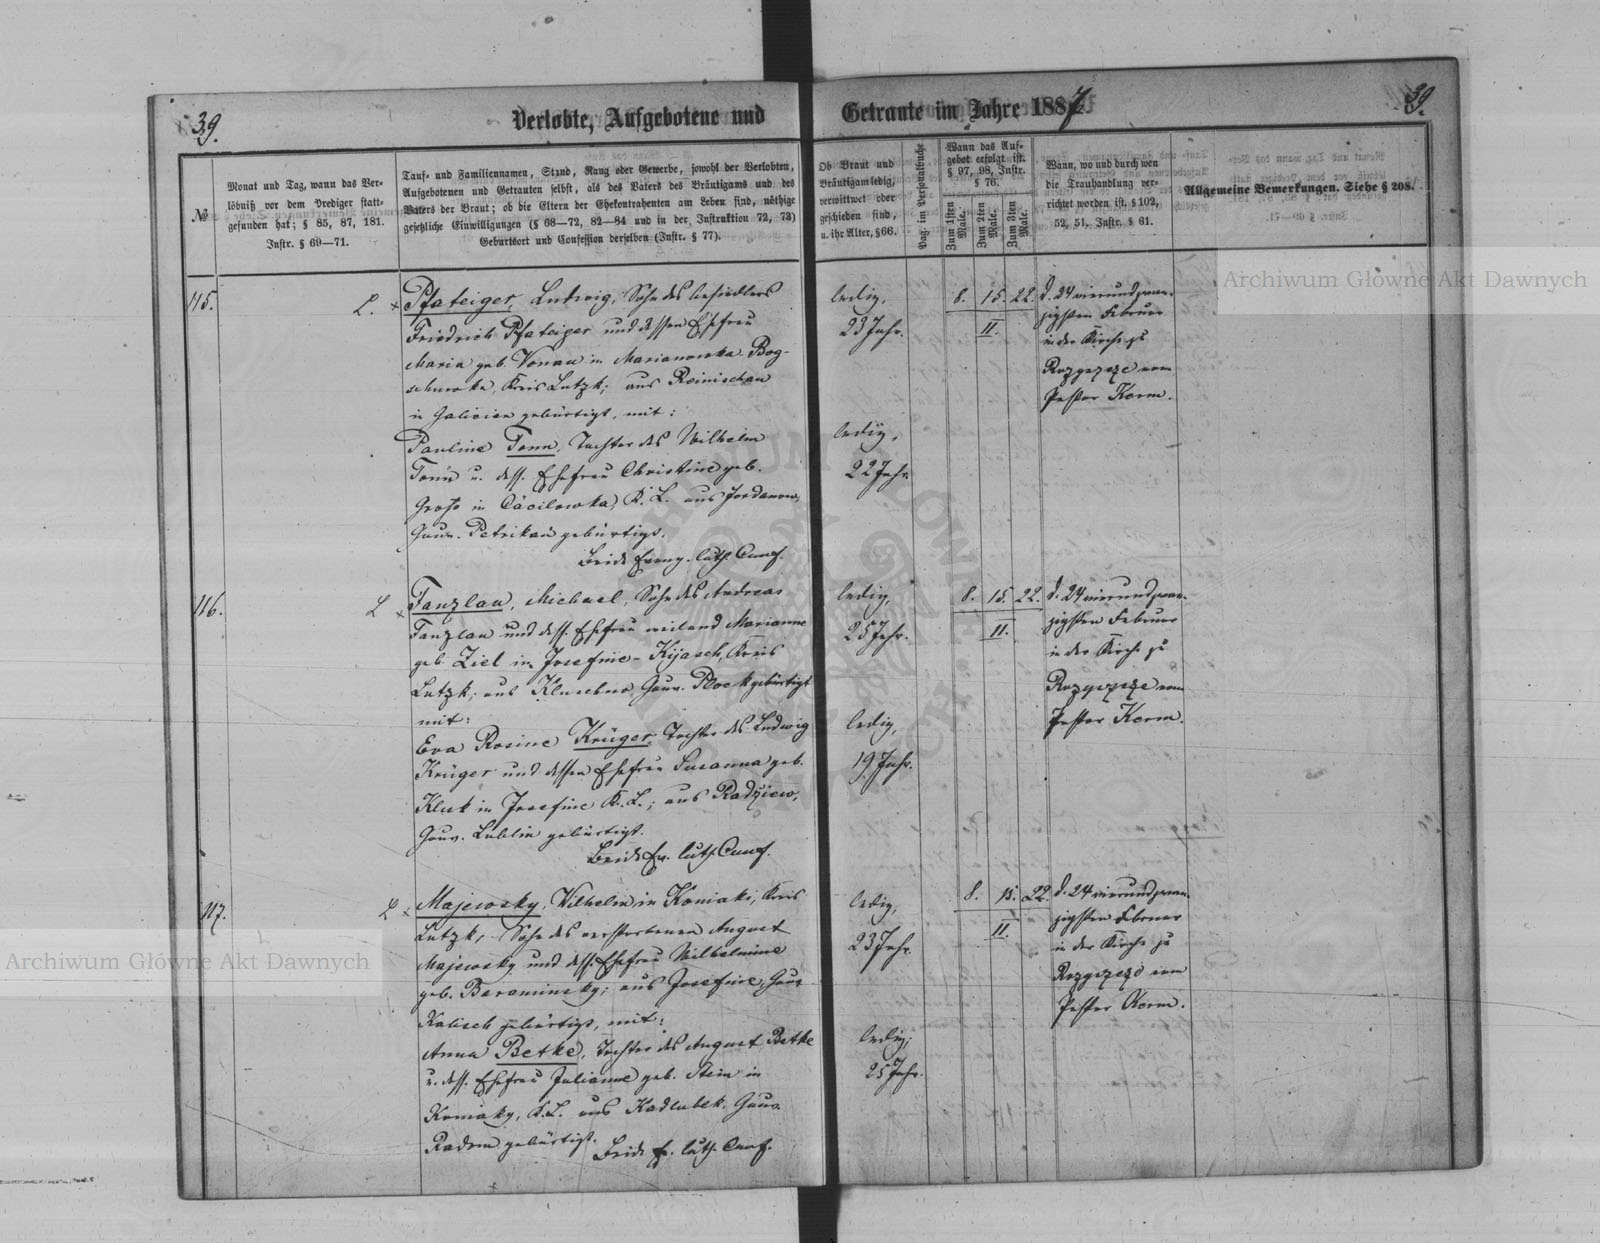 39.
Verlobte, Aufgebotene und
Getraute im Jahre 1887.
39.
№
Monat und Tag, wann das Ver-
löbniß vor dem Prediger statt-
gefunden hat; § 85, 87, 181.
Instr. § 69—71.
Tauf- und Familiennamen, Stand, Rang oder Gewerbe, sowohl der Verlobten,
Aufgebotenen und Getrauten selbst, als des Vaters des Bräutigams und des
Vaters der Braut; ob die Eltern der Ehekontrahenten am Leben sind, nöthige
gesetzliche Einwilligungen (§ 68—72, 82—84 und in der Instruktion 72, 73)
Geburtsort und Confession derselben (Instr. § 77).
Ob Braut und
Bräutigam ledig,
verwittwet oder
geschieden sind,
u. ihr Alter, §66.
Pag. im Personalbuche
Wann das Auf-
gebot erfolgt ist.
§ 97, 98, Instr.
§ 76.
Zum 1sten Male.
Zum 2ten Male.
Zum 3ten Male.
Wann, wo und durch wen
die Trauhandlung ver-
richtet worden ist. § 102,
52, 51. Instr. § 61.
Allgemeine Bemerkungen. Siehe § 208.
115.
L. × Pfateiger, Ludwig, Sohn des Ansiedlers
Friedrich Pfateiger und dessen Ehefrau
Maria geb. Vonau in Marianowka-Bog-
Kreis Lutzk; aus Reinischau
in Galicien gebürtigt, mit:
Pauline Tonn, Tochter des Wilhelm
Tonn u. dess. Ehefrau Christine geb.
Groß in Cäcilowka, K. L. aus Jordanow,
Gouv. Petrikau gebürtigt.
Beide Evang. luth. Conf.
ledig,
23 Jahr.
ledig,
22 Jahr.
8. 15. 22.
II.
d. 24 vierundzwan-
zigsten Februar
in der Kirche zu
Rozyszcze vom
Pastor Kerm.
116.
L × Tanzlau, Michael, Sohn des Andreas
Tanzlau und dess. Ehefrau weiland Marianne
geb. Ziel in Josefine-Kijasch, Kreis
Lutzk; aus Gouv. Plock gebürtigt
mit:
Eva Rosine Krüger, Tochter des Ludwig
Krüger und dessen Ehefrau Susanna geb.
Kluk in Josefine K. L.; aus Radziew,
Gouv. Lublin gebürtigt.
Beide Ev. luth. Conf.
ledig,
25 Jahr.
ledig,
19 Jahr.
8. 15. 22.
II.
d. 24 vierundzwan-
zigsten Februar
in der Kirche zu
Rozyszcze vom
Pastor Kerm.
117.
L × Majewsky, Wilhelm in Koniaki, Kreis
Lutzk, Sohn des verstorbenen August
Majewsky und dess. Ehefrau Wilhelmine
geb. Baraminsky; aus Josefine, Gouv
Kalisch gebürtigt, mit:
Anna Betke, Tochter des August Betke
u. dess. Ehefrau Julianne geb. Stein in
Koniaky, K. L. aus Kadlubek, Gouv.
Radom gebürtigt.
Beide Ev. luth. Conf.
ledig,
23 Jahr.
ledig,
25 Jahr.
8. 15. 22.
II.
d. 24 vierundzwan-
zigsten Februar
in der Kirche zu
Rozyszcze vom
Pastor Kerm.
Archiwum Główne Akt Dawnych
Archiwum Główne Akt Dawnych